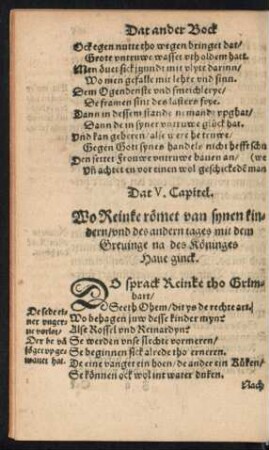 Dat ander Bock
Ock egen nutte tho wegen bringet dat/
Grote vntruwe wasset vth oldem hatt.
Men övet sick jtzundt mit vlyte darinn/
Wo men gefalle mit lehre vnd sinn.
Dem Ogendenste vnd smeichlerye/
De framen sint des lasters frye.
Dann in dessem stande nemandt vpghat/
Dann de in syner vntruwe glück hat.
Vnd kan geberen/ alse were he truwe/
Gegen Gott synes handels nicht hefft
Den settet Frouwe vntruwe bauen an/
Vn achtet en vor einen wol geschickedē man
Dat V. Capitel.
Wo Reinke römet van synen kin-
dern/ vnd des andern tages mit dem
Greuinge na des Köninges
Haue ginck.
DO sprack Reinke tho Grim-
bart/
Seeth Ohem/ dit ys de rechte art/
Wo behagen juw desse kinder myn?
Alse Rossel vnd Reinardyn?
Se werden vnse slechte vormeren/
Se beginnen sick alrede tho erneren.
De eine vanget ein hoen/ de ander ein Küken/
Se können ock wol int water duken.
De sede ei-
ner
Der be vā
Nach